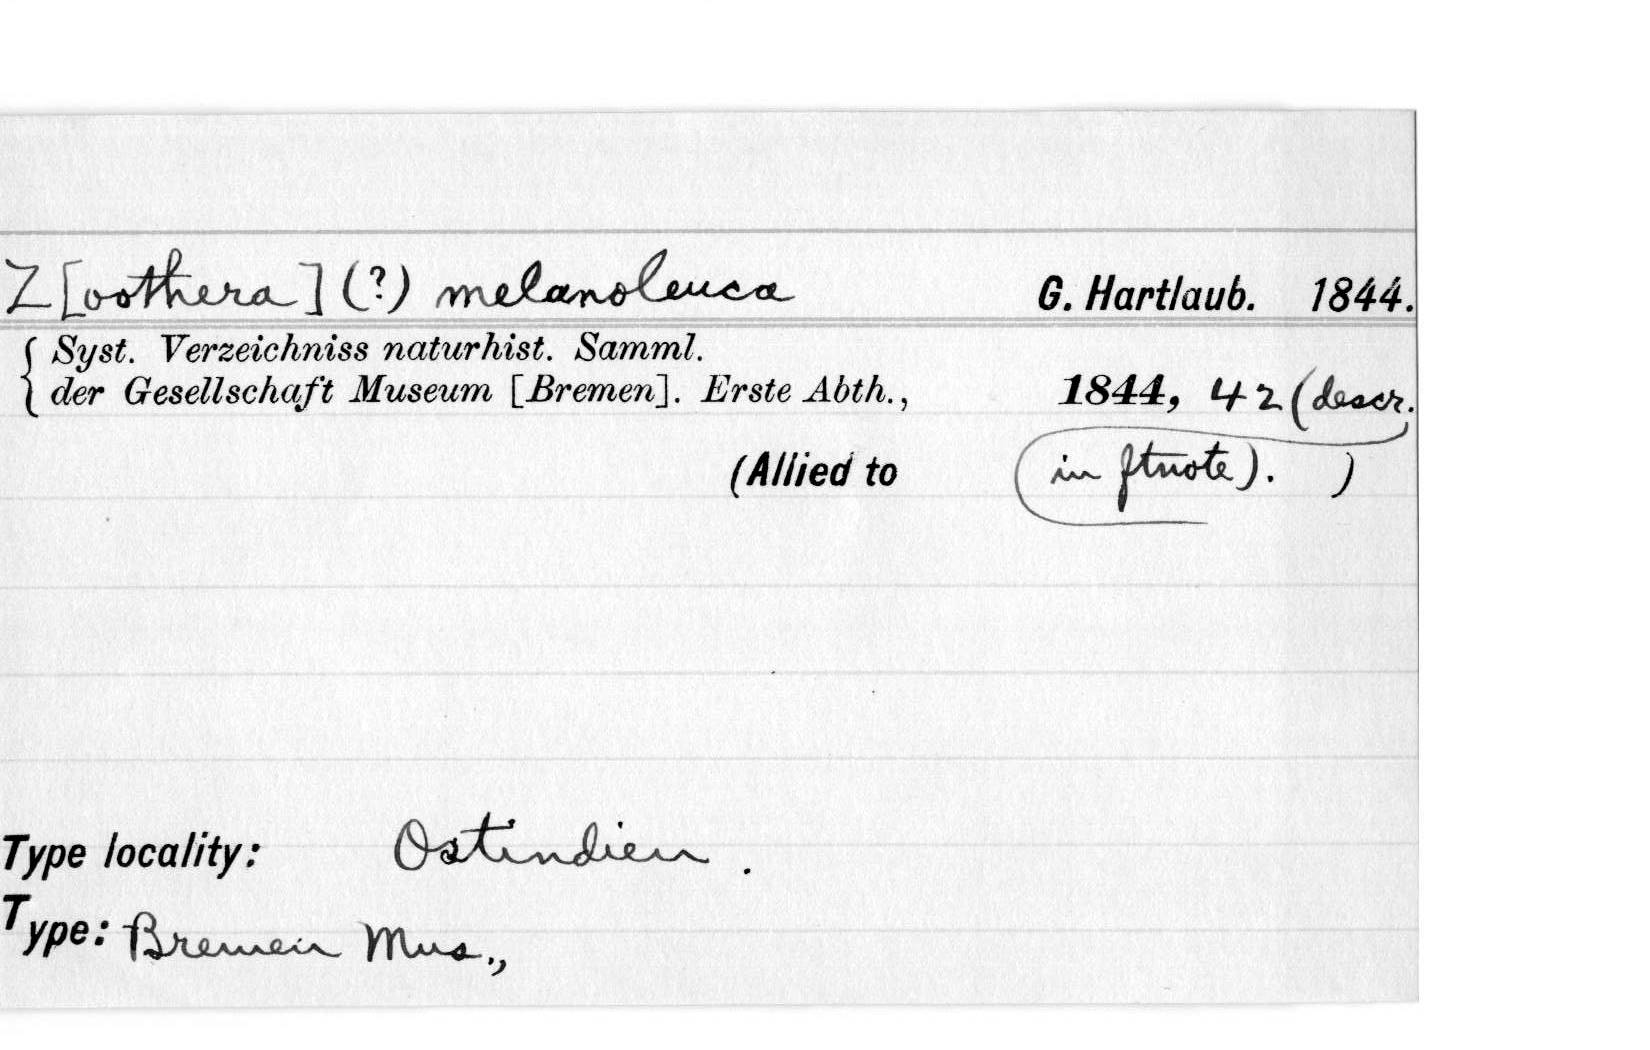 Z[oothera] (?) melanoleuca G. Hartlaub. 1844.
Syst. Verzeichniss naturhist. Samml.
der Gesellschaft Museum [Bremen]. Erste Abth., 1844, 42 (descr.
(Allied to in ftnote). )
Type locality: Ostindien .
Type: Bremen Mus.,